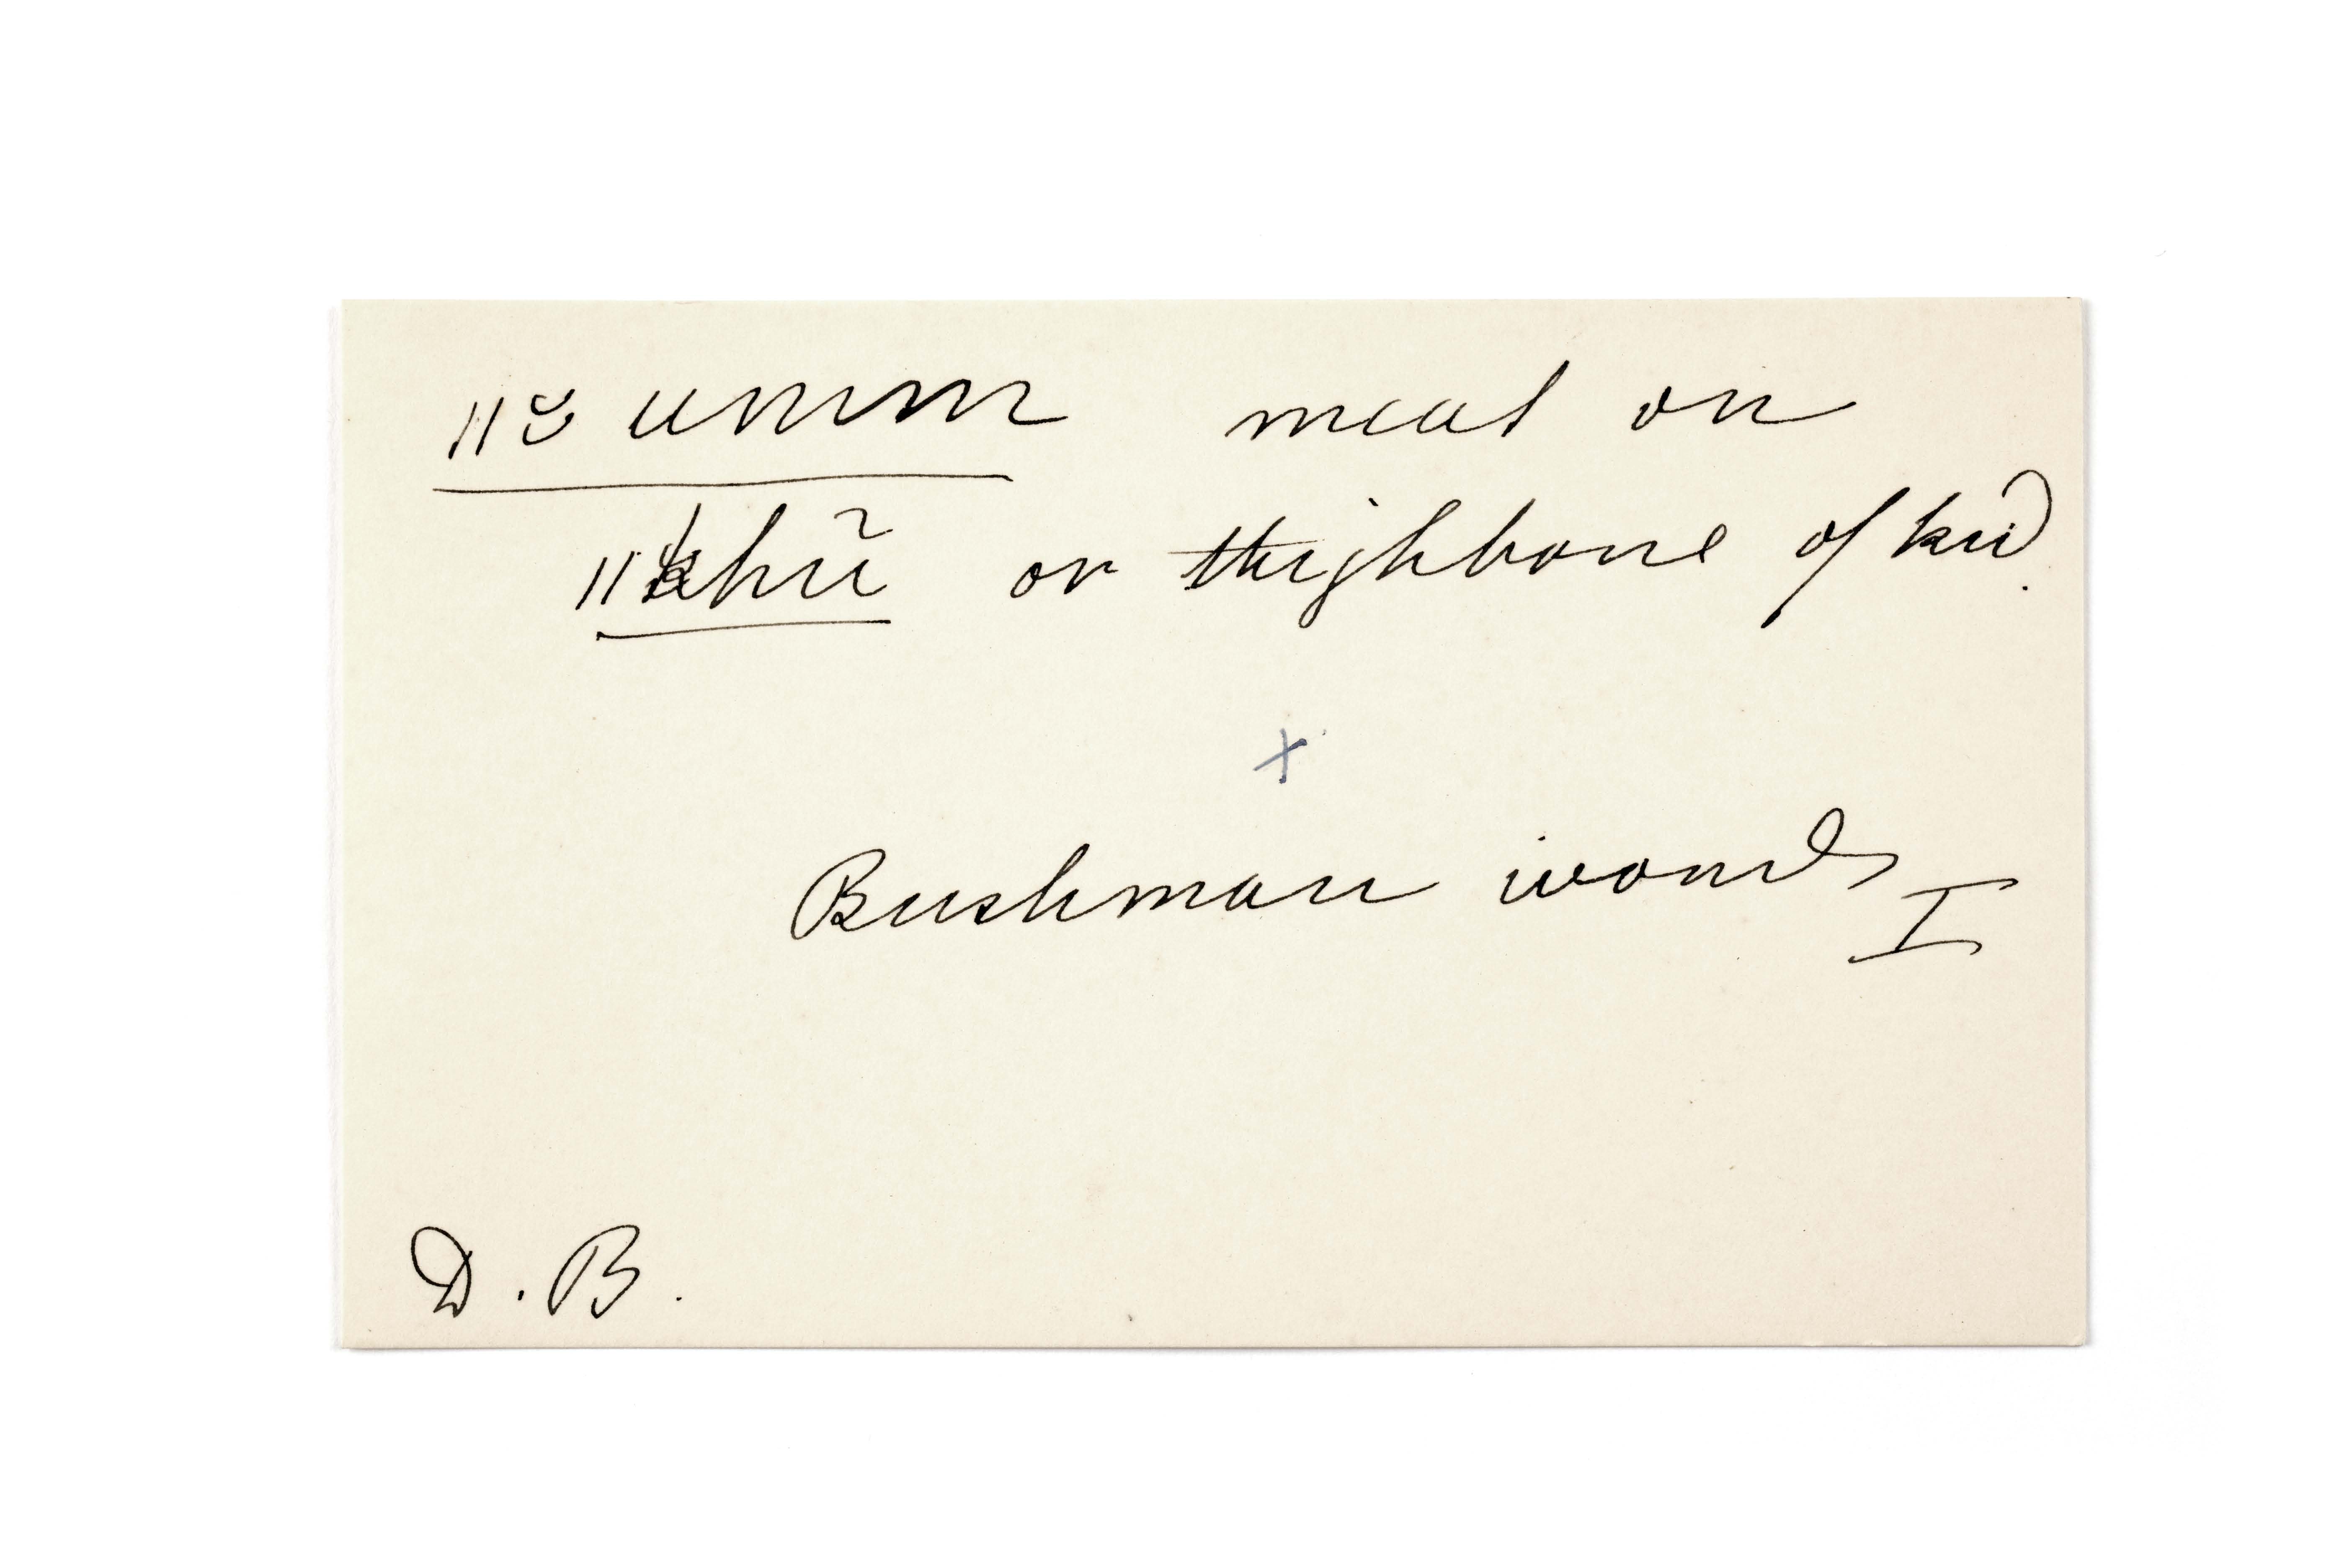 ǁ umm meat on
ǁkhũ or thighbone of kid
x
Bushman words I
D. B.